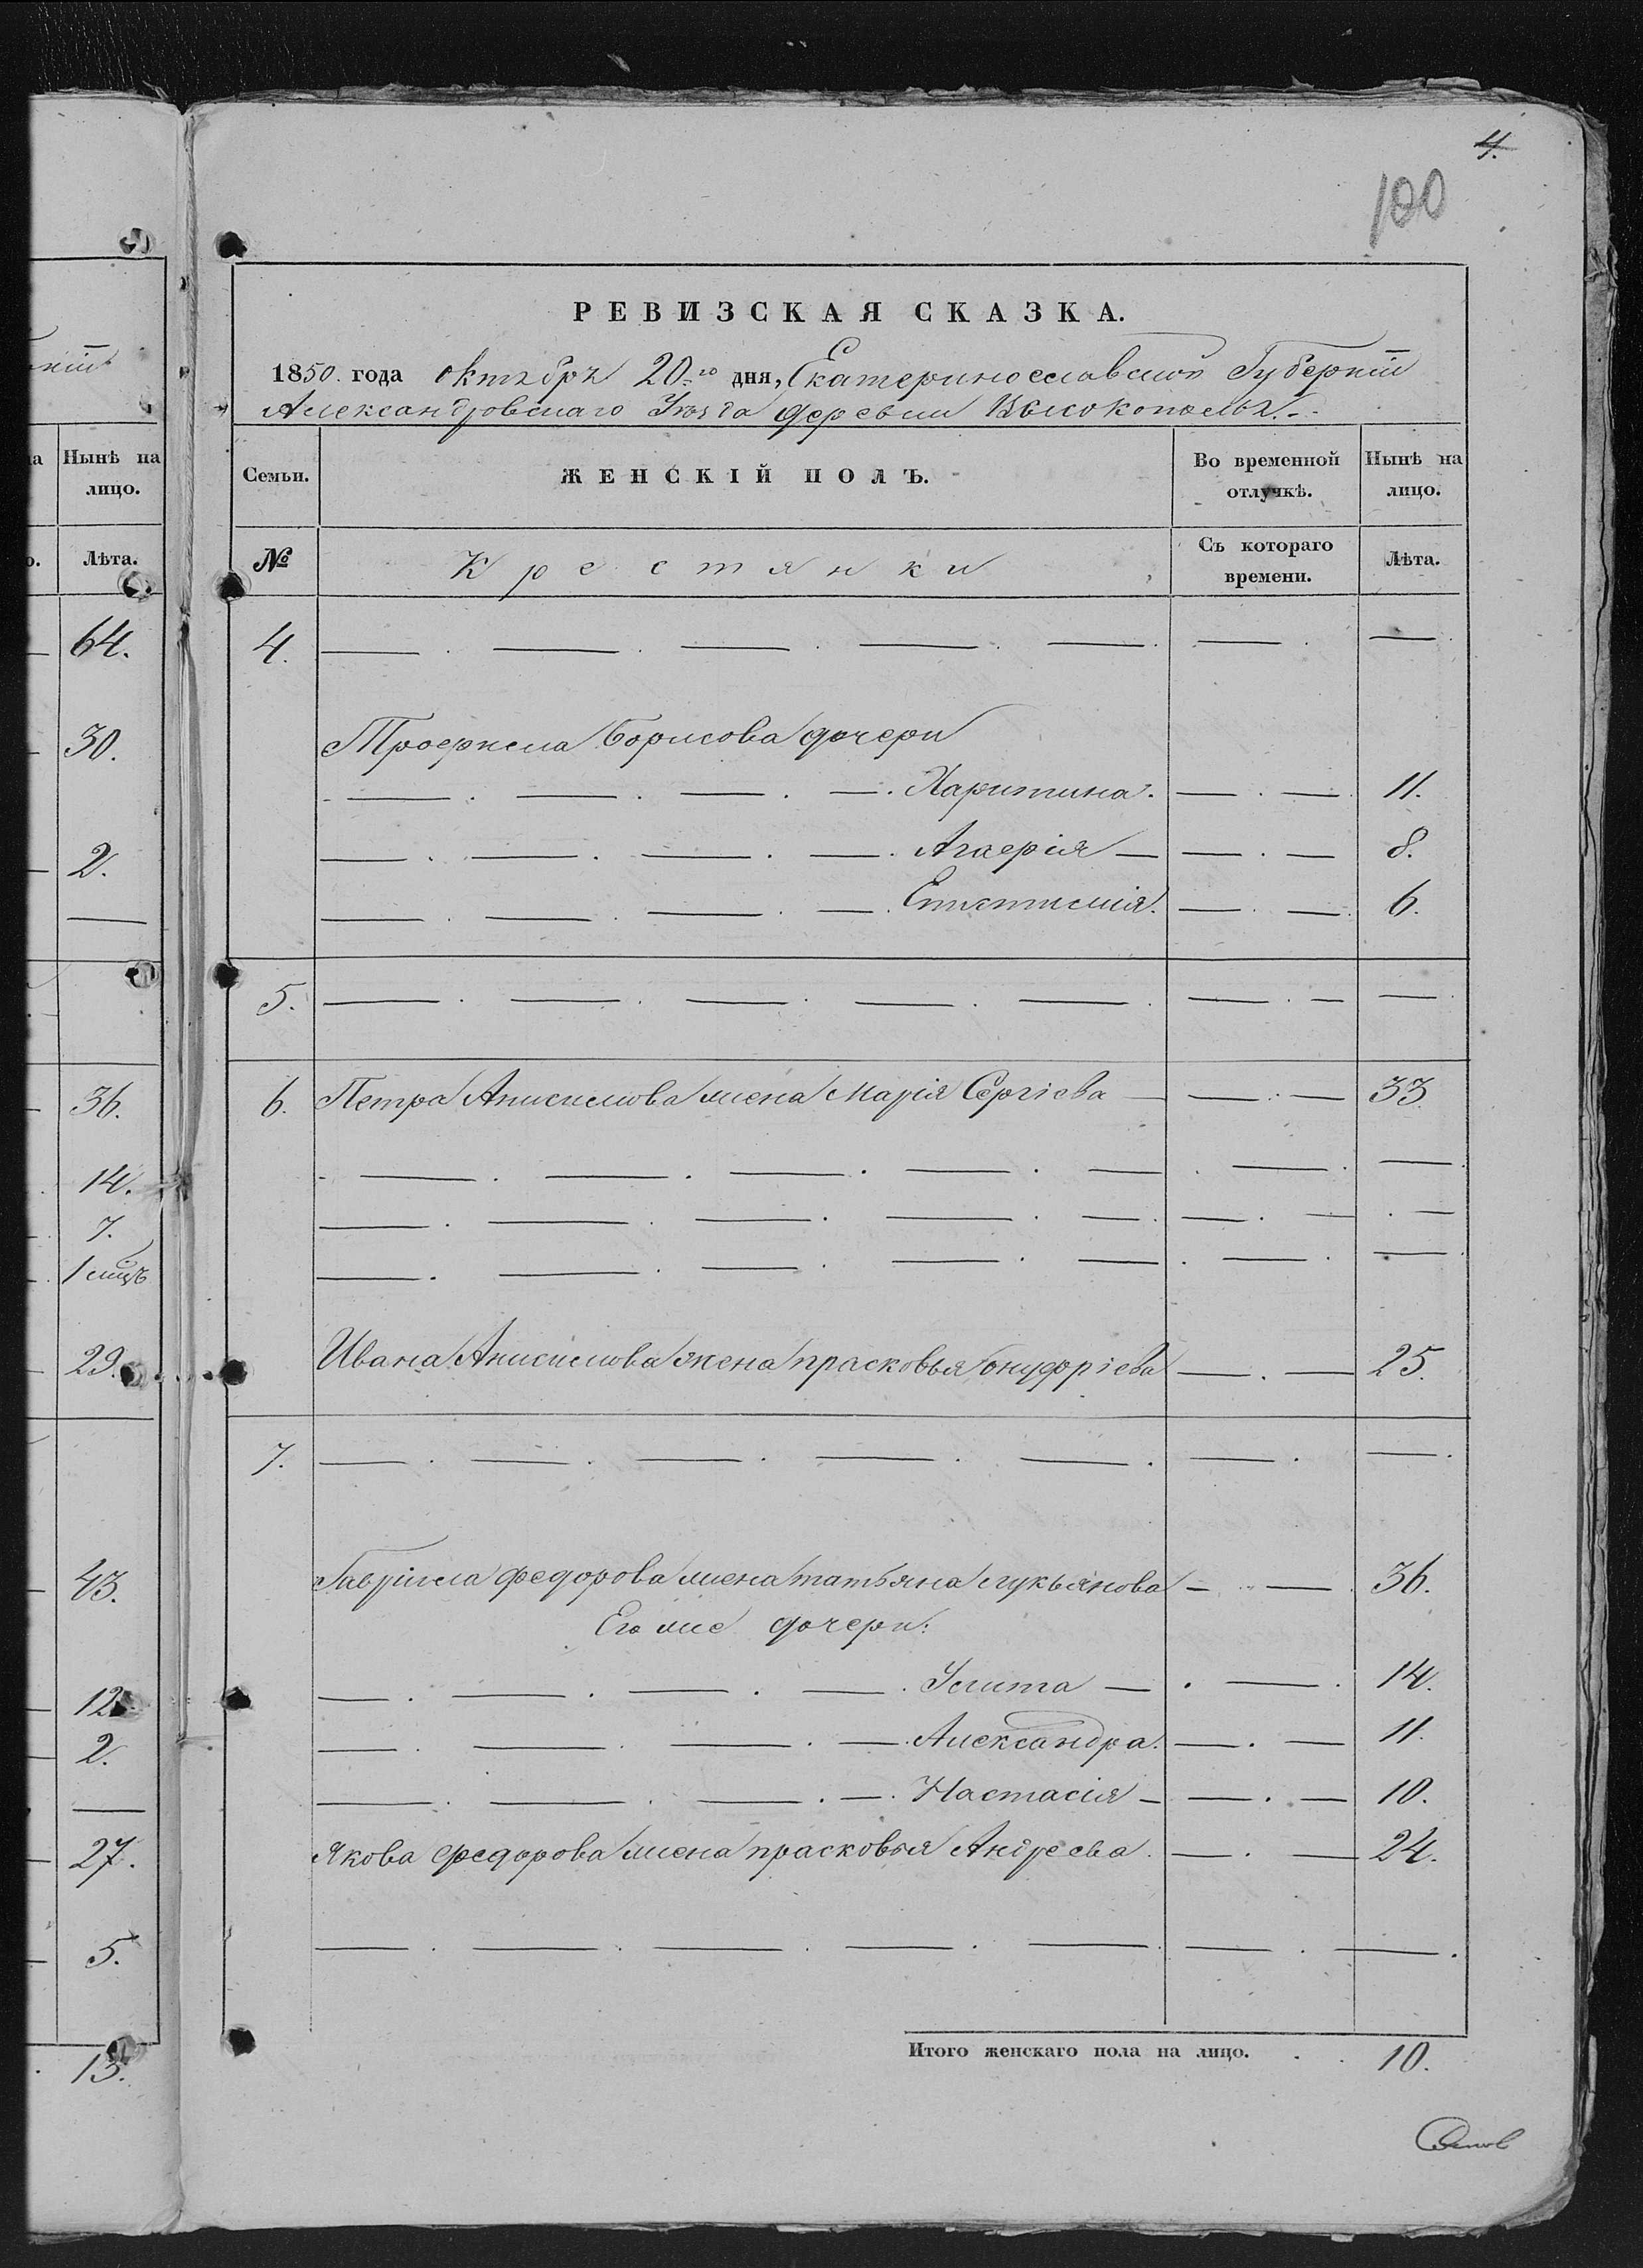 4.
100
РЕВИЗСКАЯ СКАЗКА.
1850. года октября 20.го дня, Екатеринославской Губерніи
Александровскаго Уѣзда деревни Высокополья.
Нынѣ на лицо.
Лѣта.
64.
30.
2.
36.
14.
7.
1 мцъ
29.
43.
12.
2.
27.
5.
13.
Семьи. ЖЕНСКІЙ ПОЛЪ. Во временной отлучкѣ. Нынѣ на лицо.
№ Крестянки Съ котораго времени. Лѣта.
4. — . — . — . — . — . — . — .
Трофима Борисова дочери
— . — . — . — . Харитина. — . — 11.
— . — . — . — . Агафія — — . — 8.
— . — . — . — . Епистимія. — . — 6.
5. — . — . — . — . — . — . — — .
6. Петра Анисимова жена Марія Сергіева — — . — 33
— . — . — . — . — . — . — .
— . — . — . — . — . — . — . —
— . — . — . — . — . — . — .
Ивана Анисимова жена прасковья Онуфріева — . — 25.
7. — . — . — . — . — . — . — .
Гавріила Федорова жена татьяна лукьянова — . — 36.
Его же дочери:
— . — . — . — . Улита — . — . 14.
— . — . — . — . Александра. — . — 11.
— . — . — . — . Настасія — — . — 10.
Якова Федорова жена прасковья Андреева. — . — 24.
— . — . — . — . — . — . — .
Итого женскаго пола на лицо. . . 10.